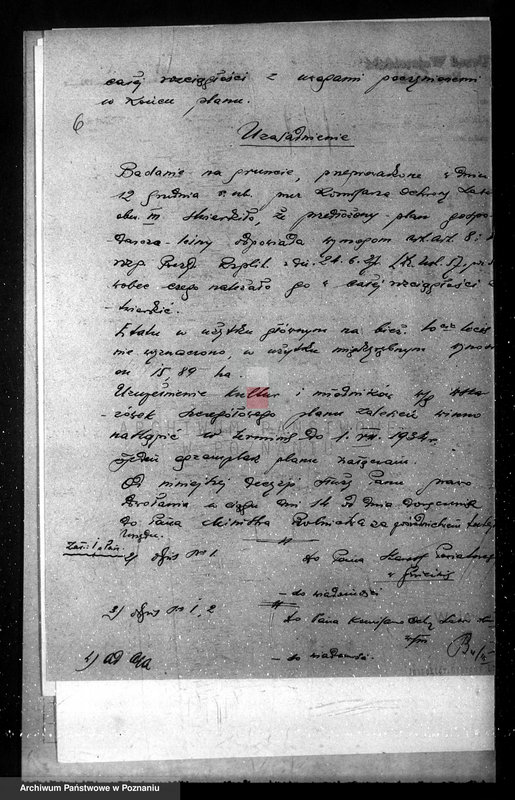 całej rozciągłości z uwagami poczynionemi
w końcu planu.
6
Uzasadnienie
Badanie na gruncie, przeprowadzone w dniu
12 grudnia r. ub. przez Komisarza Ochrony Lasów
obw. III stwierdziło, że przedłożony plan gospo-
darczo-leśny odpowiada wymogom art. art. 8 i
rozp. Prezyd. Rzplit. z dn. 24. 6. 27
wobec czego należało go w całej rozciągłości
-twierdzić.
Etatu w użytku głównym na bież.
nie wyznaczono, w użytku międzyrębnym
on 15,89 ha.
Uzupełnienie kultur i młodników wg wska-
zówek szczegółowego planu zalesień winno
nastąpić w terminie do 1. VII. 1934 r.
Jeden egzemplarz planu załączam.
Od niniejszej decyzji służy Panu prawo
odwołania w ciągu dni 14 od dnia doręczenia
do Pana Ministra Rolnictwa za pośrednictwem tutejszego
Urzędu.
Zał: 1 plan.
2) odpis № 1.
do Pana Starosty Powiatowego
- do wiadomości
2) odpis № 1, 2
do Pana Komisarza Ochr. Lasów
- do wiadomości.
4) ad acta
Archiwum Państwowe w Poznaniu